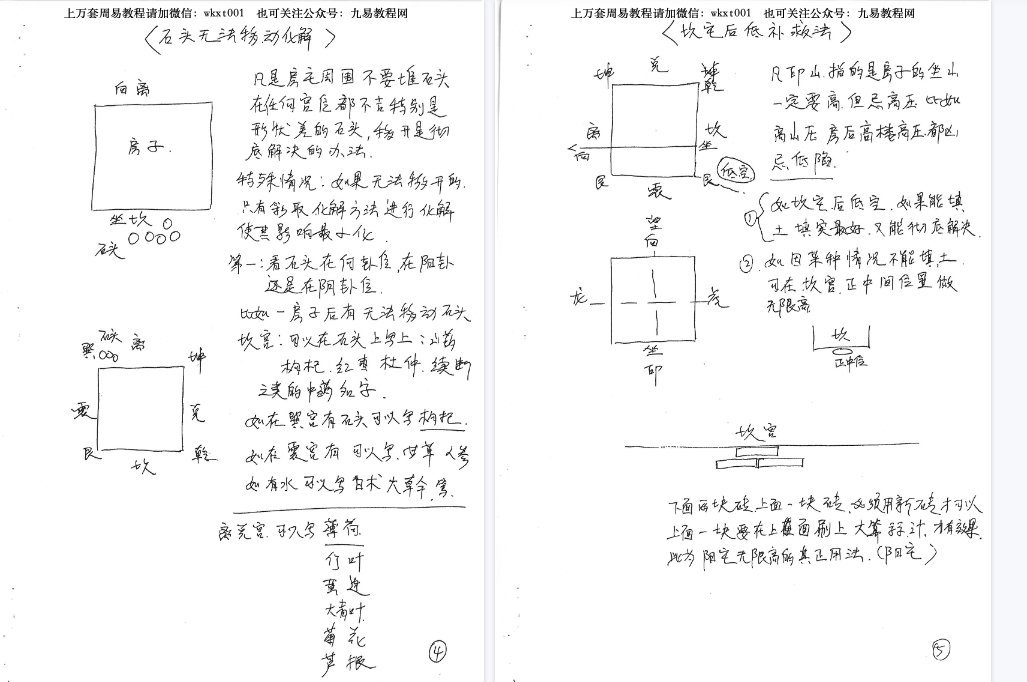 上万套周易教程请加微信：wkxt001 也可关注公众号：九易教程网
〈石头无法移动化解〉
向离
房子.
坐坎
石头
凡是房宅周围不要堆石头
在任何宫位都不吉特别是
形状差的石头，移开是彻
底解决的办法.
特殊情况：如果无法移开的.
只有采取化解方法进行化解
使其影响最小化.
第一：看石头在何卦位，在阳卦
还是在阴卦位.
比如一房子后有无法移动石头
坎宫：可以在石头上写上：山药
枸杞.红枣 杜仲.续断
之类的中药名字.
如在巽宫有石头可以写枸杞.
如在震宫有可以写.甘草 人参
如有水可以写白术 大草
离兑宫.可以写薄荷.
竹叶
黄连
大青叶
菊花
芦根
石头 离
巽
坤
震
兑
艮
坎
乾
④
上万套周易教程请加微信：wkxt001 也可关注公众号：九易教程网
〈坎宅后低补救法〉
坤 兑
乾
离
向
坎
坐
艮
震
艮
低空
凡印山.指的是房子的坐山
一定要高.但忌高压.比如
高山在房后高楼高压.都凶
忌低陷.
① 如坎宅后低空.如果能填
土填实最好.又能彻底解决.
② 如因某种情况不能填土.
可在坎宫.正中间位置做
无限高
向
龙
虎
坐
印
坎
正中位
坎宫
下面两块砖上面一块砖，必须用新砖才可以
上面一块要在上面刷上大蒜汁.才有效果.
此为阳宅无限高的真正用法.（阳宅）
⑤